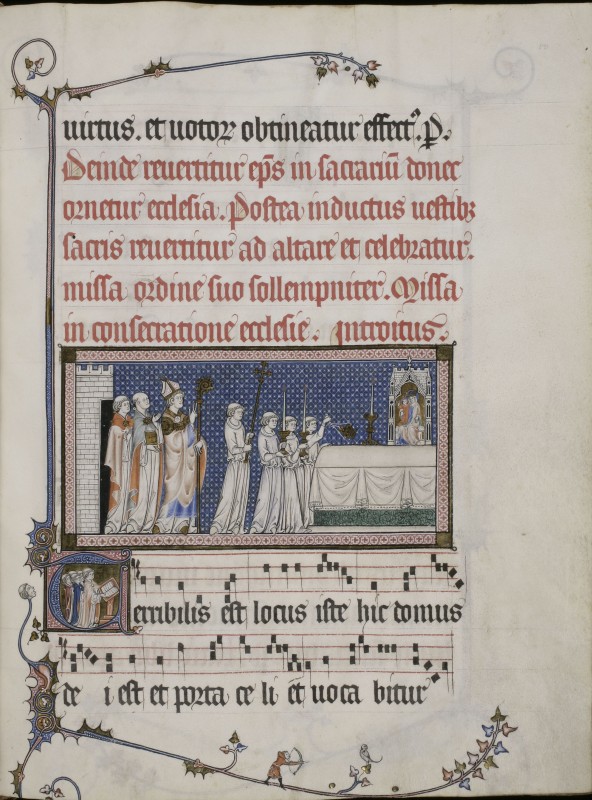 uirtus. et uotoꝝ obtineatur effectꝰ. p.
Deinde reuertitur ep̄s in sacrariū donec
ornetur ecclesia. Postea inductus uestibꝫ
sacris reuertitur ad altare et celebratur.
missa ordine suo sollempniter. Missa
in consecratione ecclesie. Introitus.
Terribilis est locus iste hic domus
de i est et porta ce li et uoca bitur